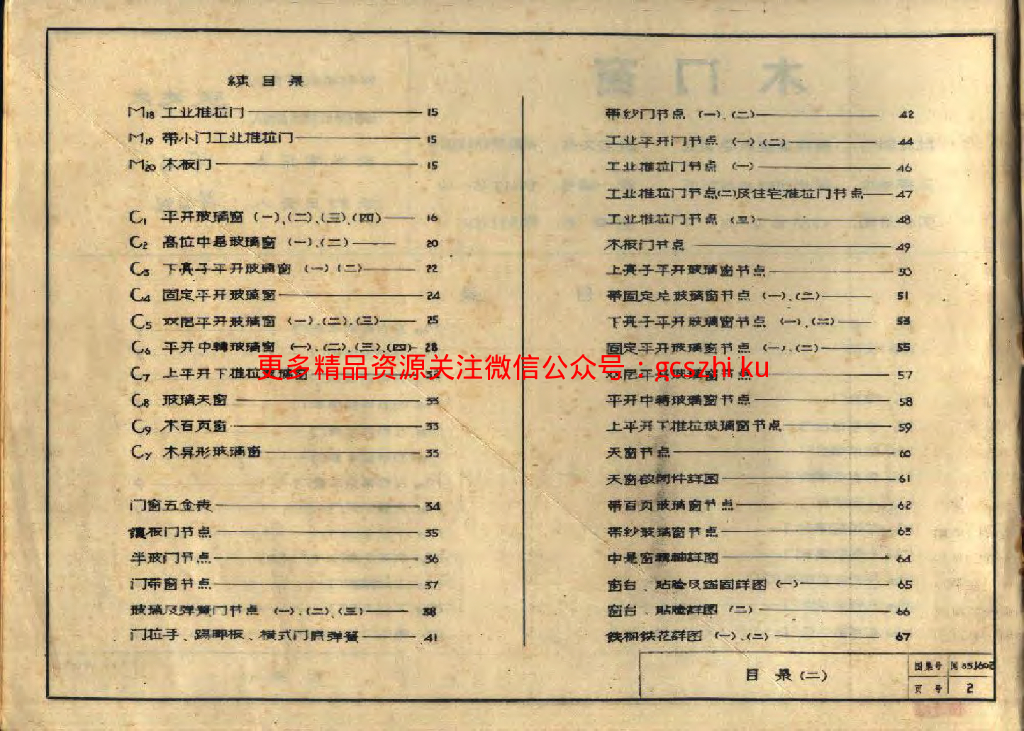 续目录
M18 工业推拉门 15
M19 带小门工业推拉门 15
M20 木板门 15
C1 平开玻璃窗 (一).(二).(三).(四) 16
C2 高位中悬玻璃窗 (一).(二) 20
C3 下亮子平开玻璃窗 (一)(二) 22
C4 固定平开玻璃窗 24
C5 双层平开玻璃窗 (一).(二).(三) 25
C6 平开中轉玻璃窗 (一).(二).(三).(四) 28
C7 上平开下推拉玻璃窗
C8 玻璃天窗 33
C9 木百页窗 33
Cy 木异形玻璃窗 33
门窗五金表 34
镶板门节点 35
半玻门节点 36
门带窗节点 37
玻璃及弹簧门节点 (一).(二).(三) 38
门拉手、踢脚板、横式门弹簧 41
带纱门节点 (一).(二) 42
工业平开门节点 (一).(二) 44
工业推拉门节点 (一) 46
工业推拉门节点(二)及住宅推拉门节点 47
工业推拉门节点 (三) 48
木板门节点 49
上亮子平开玻璃窗节点 50
带固定片玻璃窗节点 (一).(二) 51
下亮子平开玻璃窗节点 (一).(二) 53
固定平开玻璃窗节点 (一).(二) 55
双层平开玻璃窗节点 57
平开中轉玻璃窗节点 58
上平开下推拉玻璃窗节点 59
天窗节点 60
天窗启闭件詳图 61
带百页玻璃窗节点 62
带纱玻璃窗节点 63
中悬窗轉轴詳图 64
窗台、貼脸及錨固詳图 (一) 65
窗台、貼脸詳图 (二) 66
鉄栅鉄花詳图 (一).(二) 67
更多精品资源关注微信公众号：gcszhiku
目录(二)
图集号
页号 2
木门窗